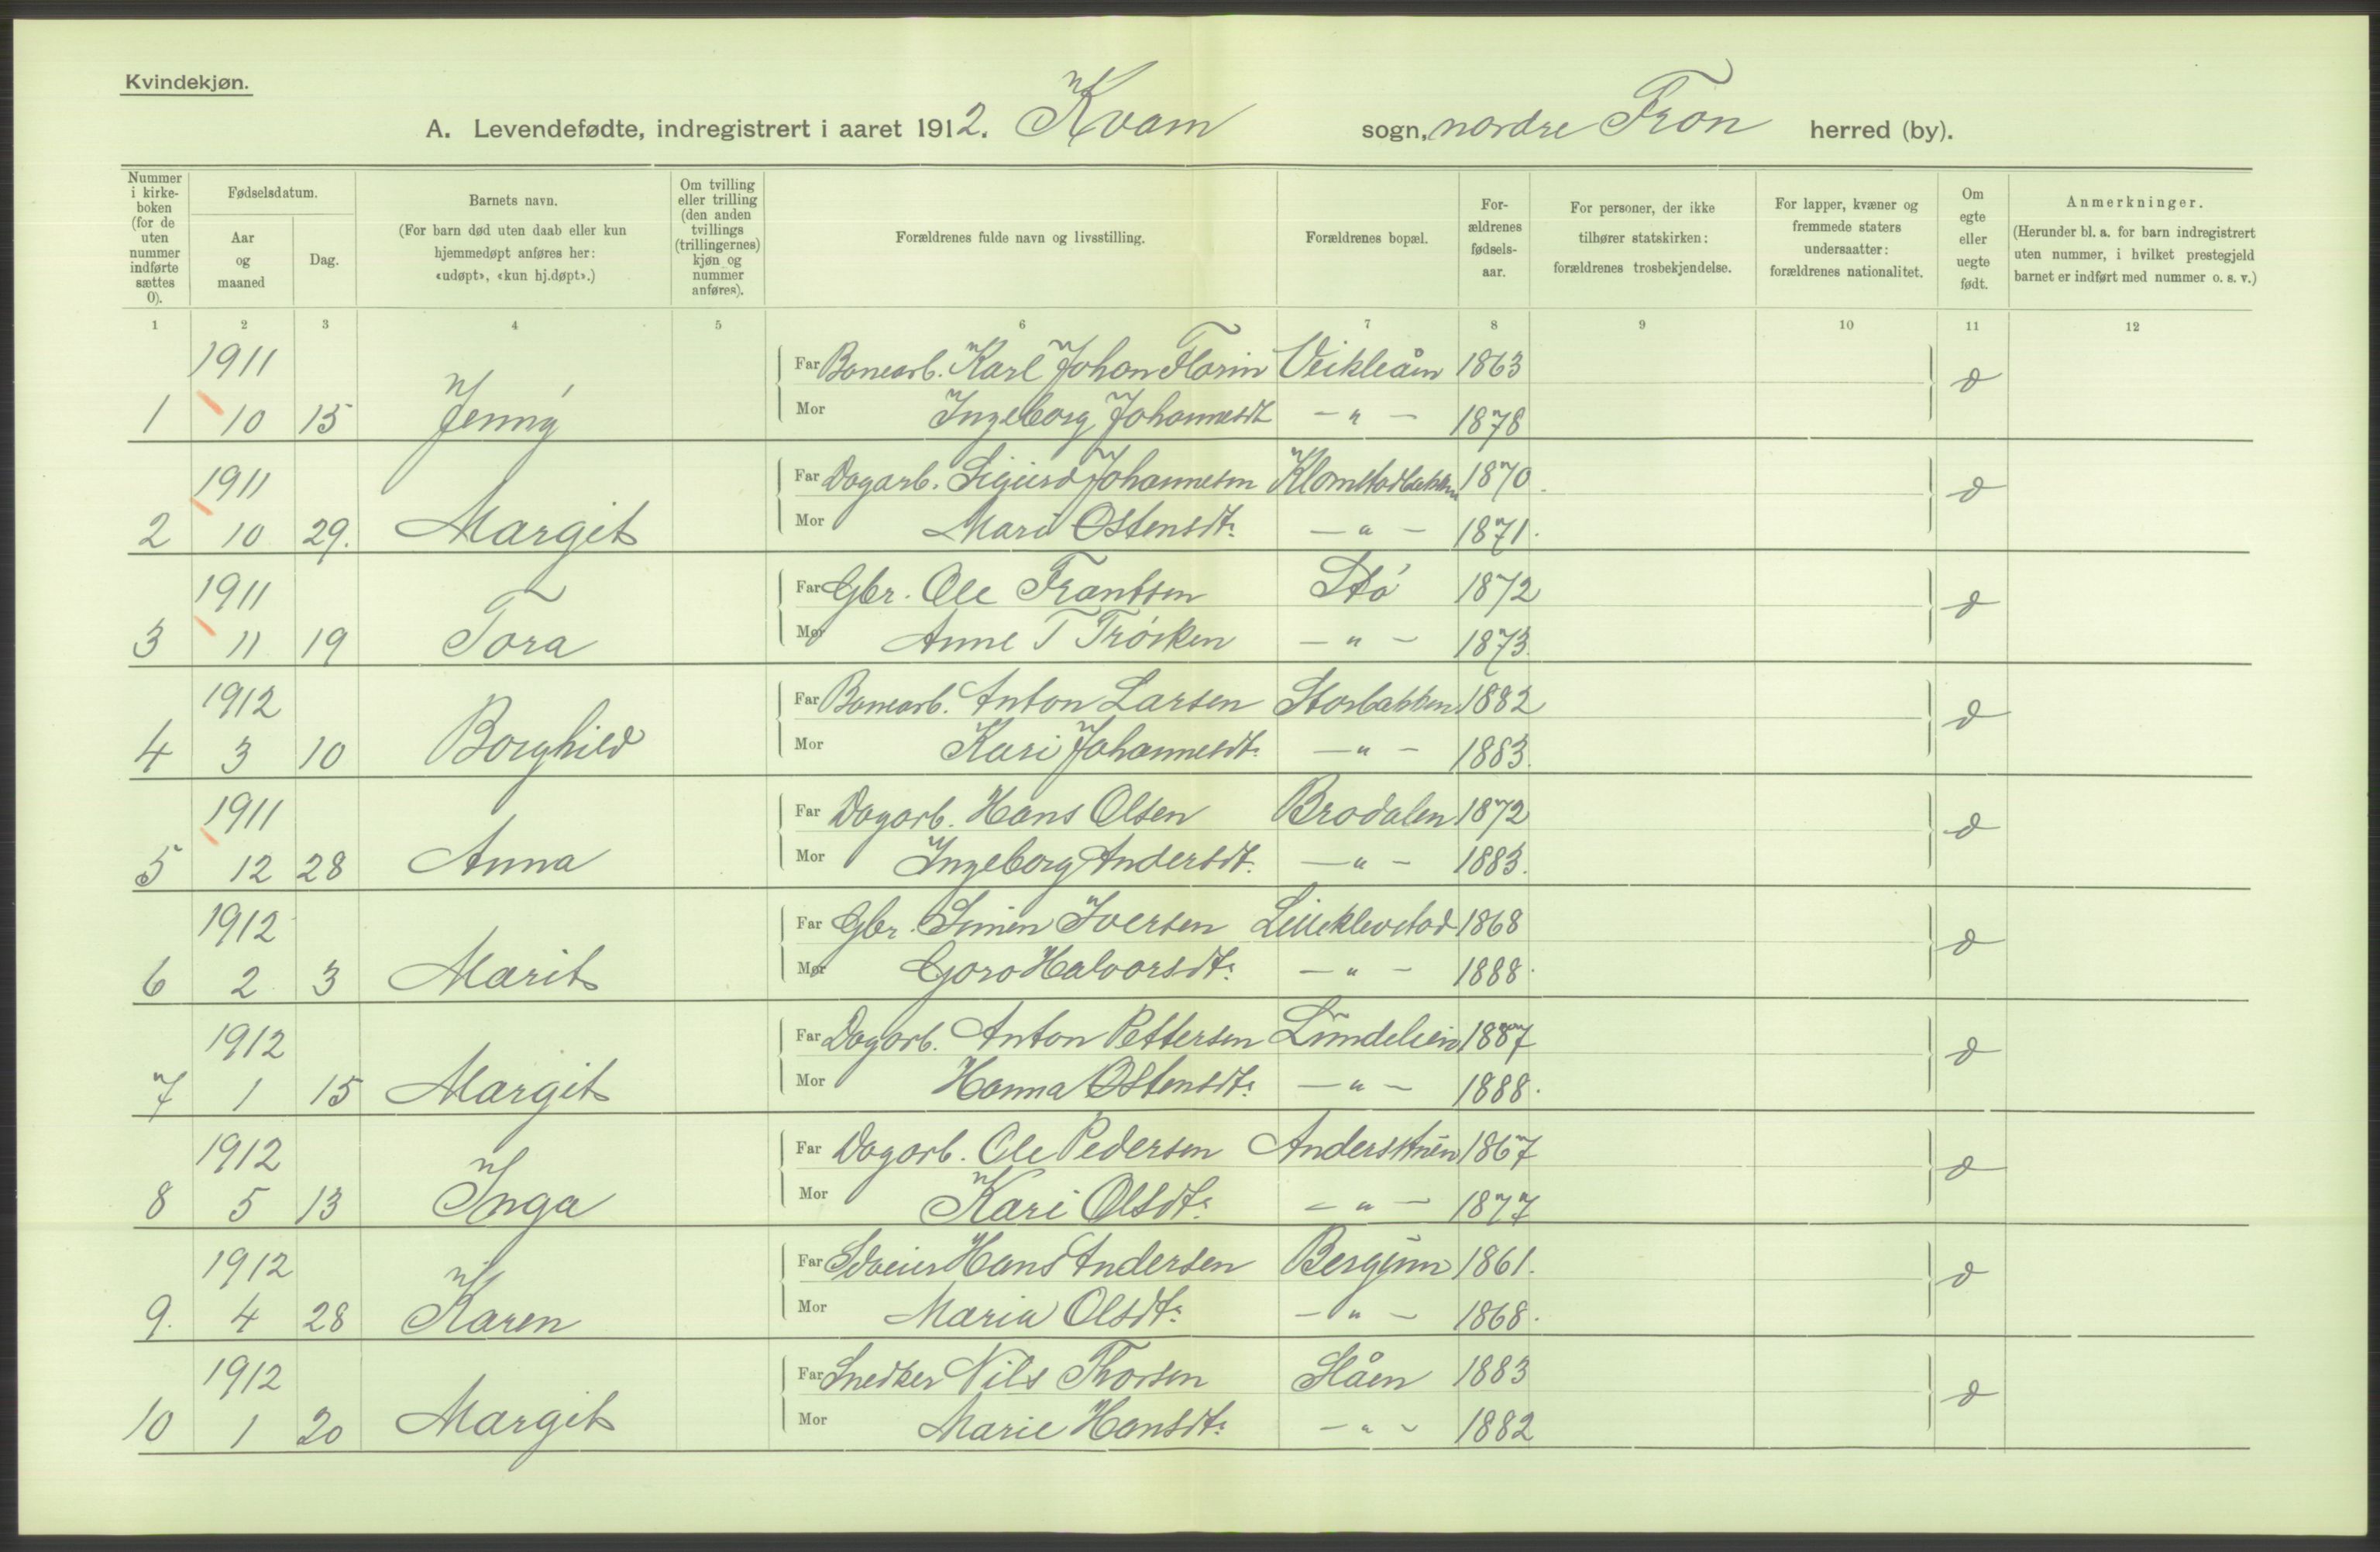 Kvindekjøn.
A. Levendefødte, indregistrert i aaret 1912. Kvam sogn, nordre Fron herred (by).
Nummer i kirkeboken (for de uten nummer indførte sættes 0).
Fødselsdatum.
Aar og maaned
Dag.
Barnets navn.
(For barn død uten daab eller kun hjemmedøpt anføres her: «udøpt», «kun hj.døpt».)
Om tvilling eller trilling (den anden tvillings (trillingernes) kjøn og nummer anføres).
Forældrenes fulde navn og livsstilling.
Forældrenes bopæl.
Forældrenes fødselsaar.
For personer, der ikke tilhører statskirken: forældrenes trosbekjendelse.
For lapper, kvæner og fremmede staters undersaatter: forældrenes nationalitet.
Om egte eller uegte født.
Anmerkninger.
(Herunder bl. a. for barn indregistrert uten nummer, i hvilket prestegjeld barnet er indført med nummer o. s. v.)
1 2 3 4 5 6 7 8 9 10 11 12
1911 Far Banearb. Karl Johan Florin Veikleåen 1863
1 10 15 Jenny Mor Ingeborg Johannesdt. — " — 1878
1911 Far Dagarb. Sigurd Johannesen Klomstadbakken 1870.
2 10 29. Margit Mor Mari Ostensdt. — " — 1871.
1911 Far Gbr. Ole Frantsen Stó 1872
3 11 19 Tora Mor Anne T — " — 1873.
1912 Far Banearb. Anton Larsen Storbakken 1882
4 3 10 Borghild Mor Kari Johannesdt. — " — 1883.
1911 Far Dagarb. Hans Olsen Bradalen 1872
5 12 28 Anna Mor Ingeborg Andersdt. — " — 1883.
1912 Far Gbr. Simen Iversen Lilleklevstad 1868
6 2 3 Marit Mor Goro Halvorsdt. — " — 1888.
1912 Far Dagarb. Anton Pettersen Lundelien 1887
7 1 15 Margit Mor Hanna Ostensdt. — " — 1888.
1912 Far Dagarb. Ole Pedersen 1867
8 5 13 Inga Mor Kari Olsdt. — " — 1877
1912 Far Hans Andersen 1861.
9. 4 28 Karen Mor Maria Olsdt. — " — 1868.
1912 Far Snedker Nils Thorsen Slåen 1883
10 1 20 Margit Mor Marie Hansdt. — " — 1882